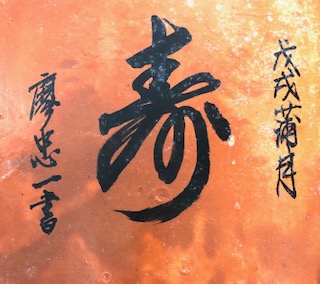 戊戌蒲月
寿
廖忠一書